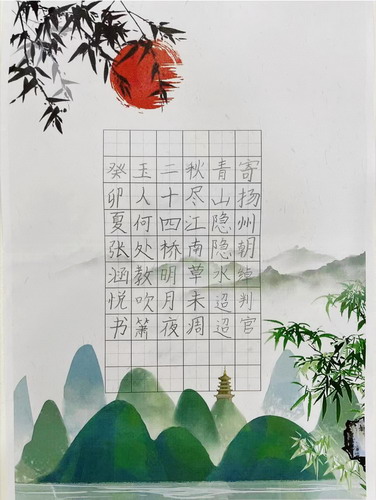 寄扬州朝绰判官
青山隐隐水迢迢
秋尽江南草未凋
二十四桥明月夜
玉人何处教吹箫
癸卯夏张涵悦书